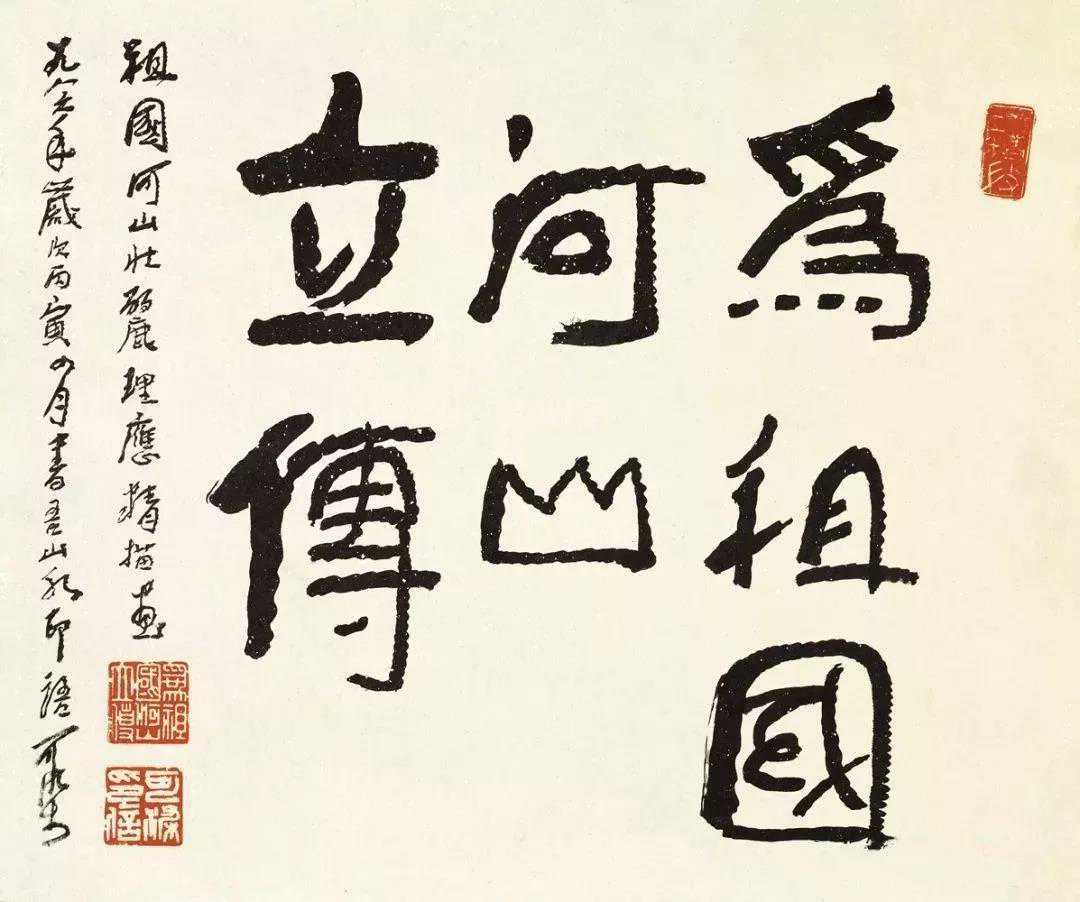 爲祖國
河山
立傳
祖國河山壯麗理應精描畫
九八六年歲次丙寅四月書吾山水印語可染
爲祖國河山立傳
可染印信